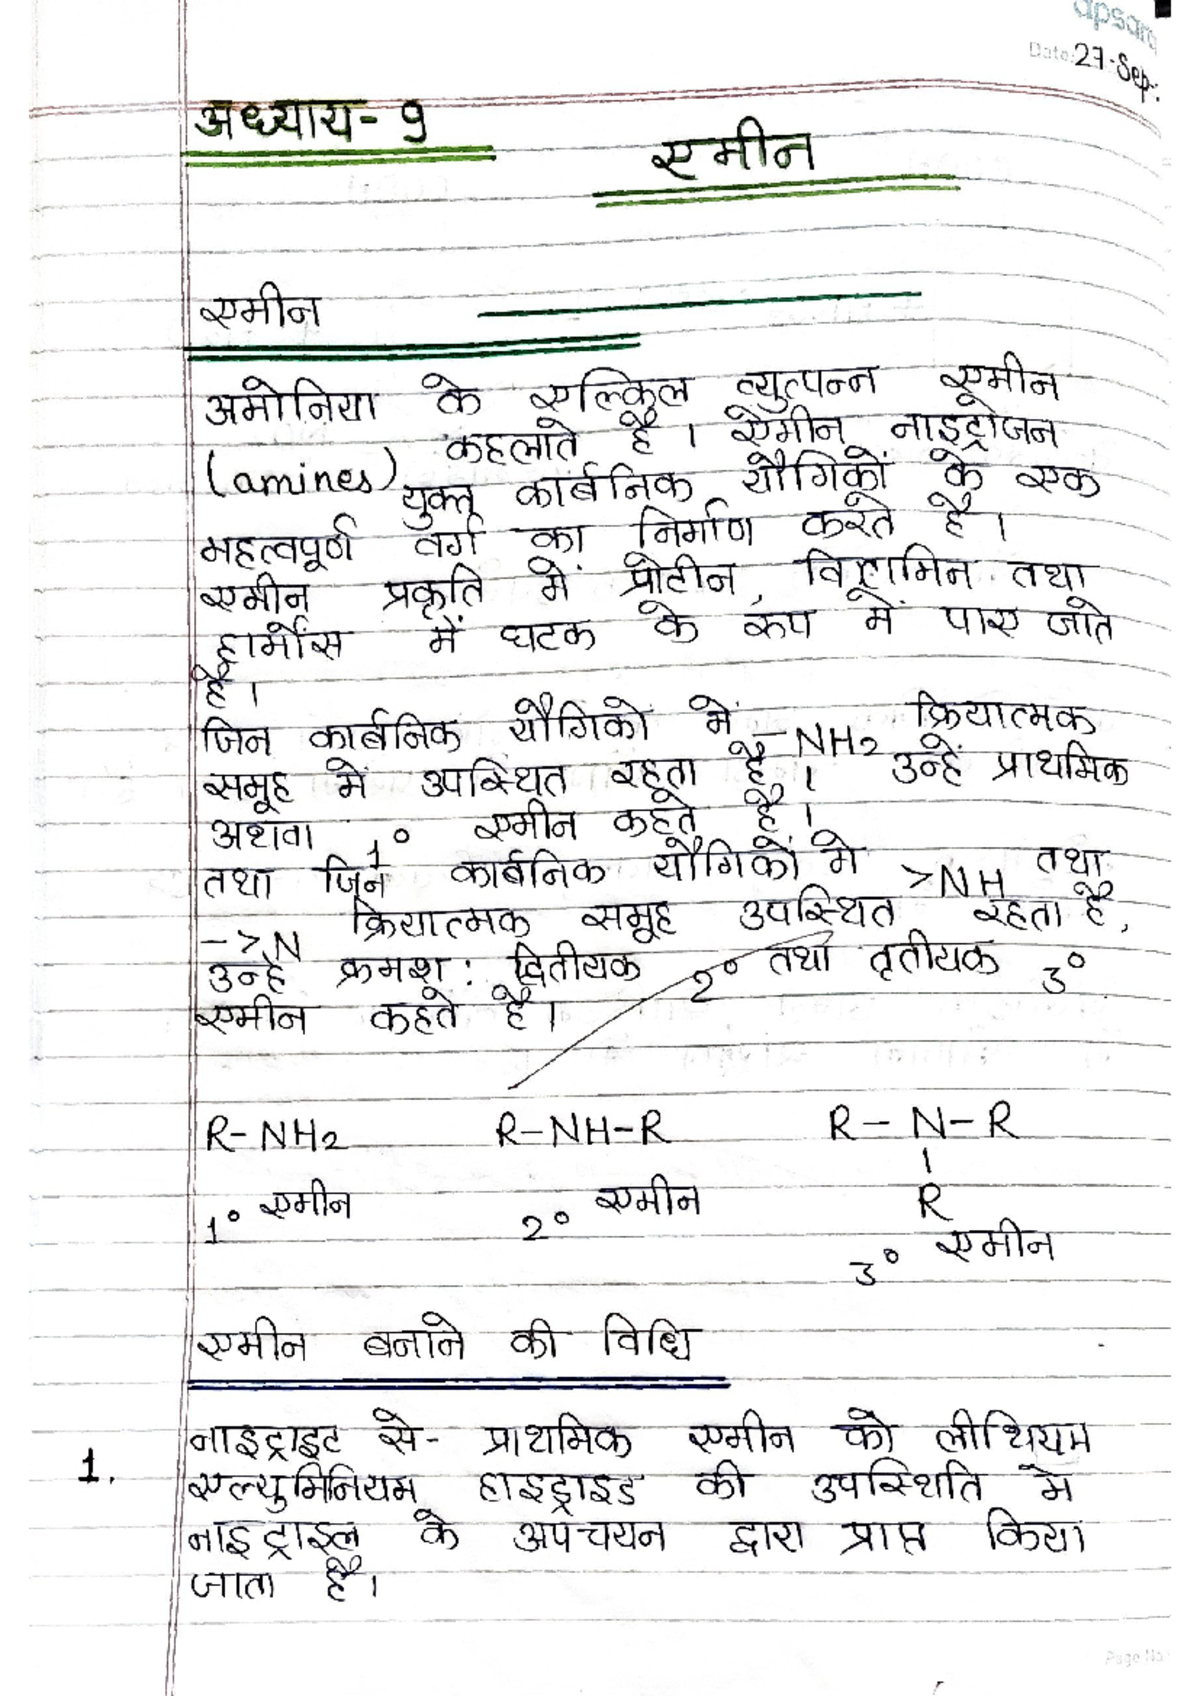 apsara
Date: 27-Sep.
अध्याय- 9
एमीन
एमीन
अमोनिया के एल्किल व्युत्पन्न एमीन
(amines) कहलाते है । ऐमीन नाइट्रोजन
युक्त कार्बनिक यौगिकों के एक
महत्वपूर्ण वर्ग का निर्माण करते है ।
एमीन प्रकृति में प्रोटीन, विटामिन तथा
हार्मोंस में घटक के रूप में पाए जाते
है ।
जिन कार्बनिक यौगिकों में -NH2 क्रियात्मक
समूह में उपस्थित रहता है । उन्हें प्राथमिक
अथवा 1° एमीन कहते है ।
तथा जिन कार्बनिक यौगिकों मे >NH तथा
->N क्रियात्मक समूह उपस्थित रहता है,
उन्हें क्रमश: द्वितीयक 2° तथा तृतीयक 3°
एमीन कहते है ।
R-NH2 R-NH-R R-N-R
R
1° एमीन 2° एमीन 3° एमीन
एमीन बनाने की विधि
1. नाइट्राइट से- प्राथमिक एमीन को लीथियम
एल्युमिनियम हाइड्राइड की उपस्थिति मे
नाइट्राइल के अपचयन द्वारा प्राप्त किया
जाता है ।
Page No